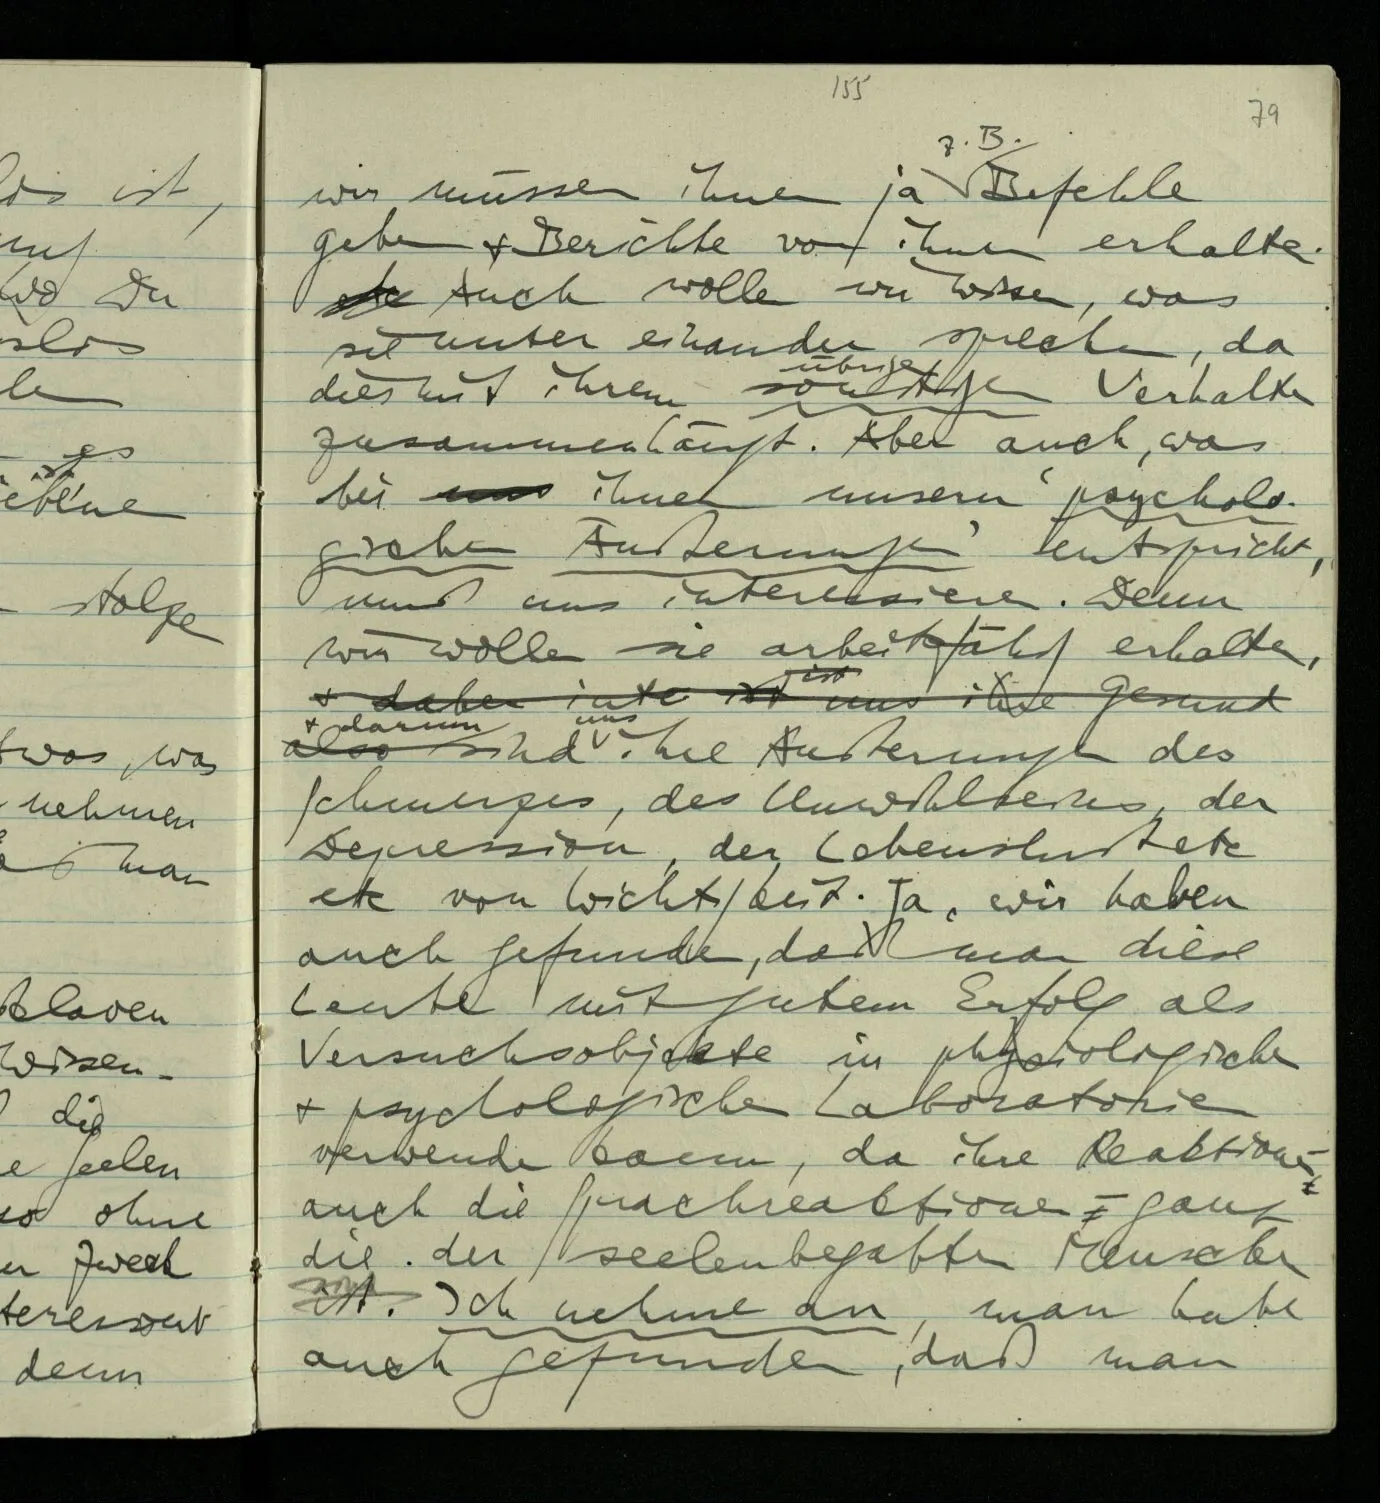 155
79
z. B.
wir müssen ihnen ja Befehle
geben + Berichte von ihnen erhalten.
etc Auch wollen wir wissen, was
sie unter einander sprechen, da
übrigen
dies mit ihrem sonstigen Verhalten
zusammenhängt. Aber auch, was
bei uns ihnen unsern ‘psycholo-
gischen Äußerungen’ entspricht,
muß uns interessieren. Denn
wir wollen sie arbeitsfähig erhalten,
ist
+ daher inte ist uns ihre Gesund
+ darum uns
also sind ihre Äußerungen des
Schmerzes, des Unwohlseins, der
Depression, der Lebenslust etc
etc von Wichtigkeit. Ja, wir haben
auch gefunden, daß man diese
Leute mit gutem Erfolg als
Versuchsobjekte in physiologischen
+ psychologischen Laboratorien
verwenden kann, da ihre Reaktionen –
auch die Sprachreaktionen – ganz
die der seelenbegabten Menschen
sind
ist. Ich nehme an, man habe
auch gefunden, daß man
los ist,
Du
es
stolze
etwas, was
nehmen
man
Sklaven
Wissen-
die
Seelen
so ohne
Zweck
denn